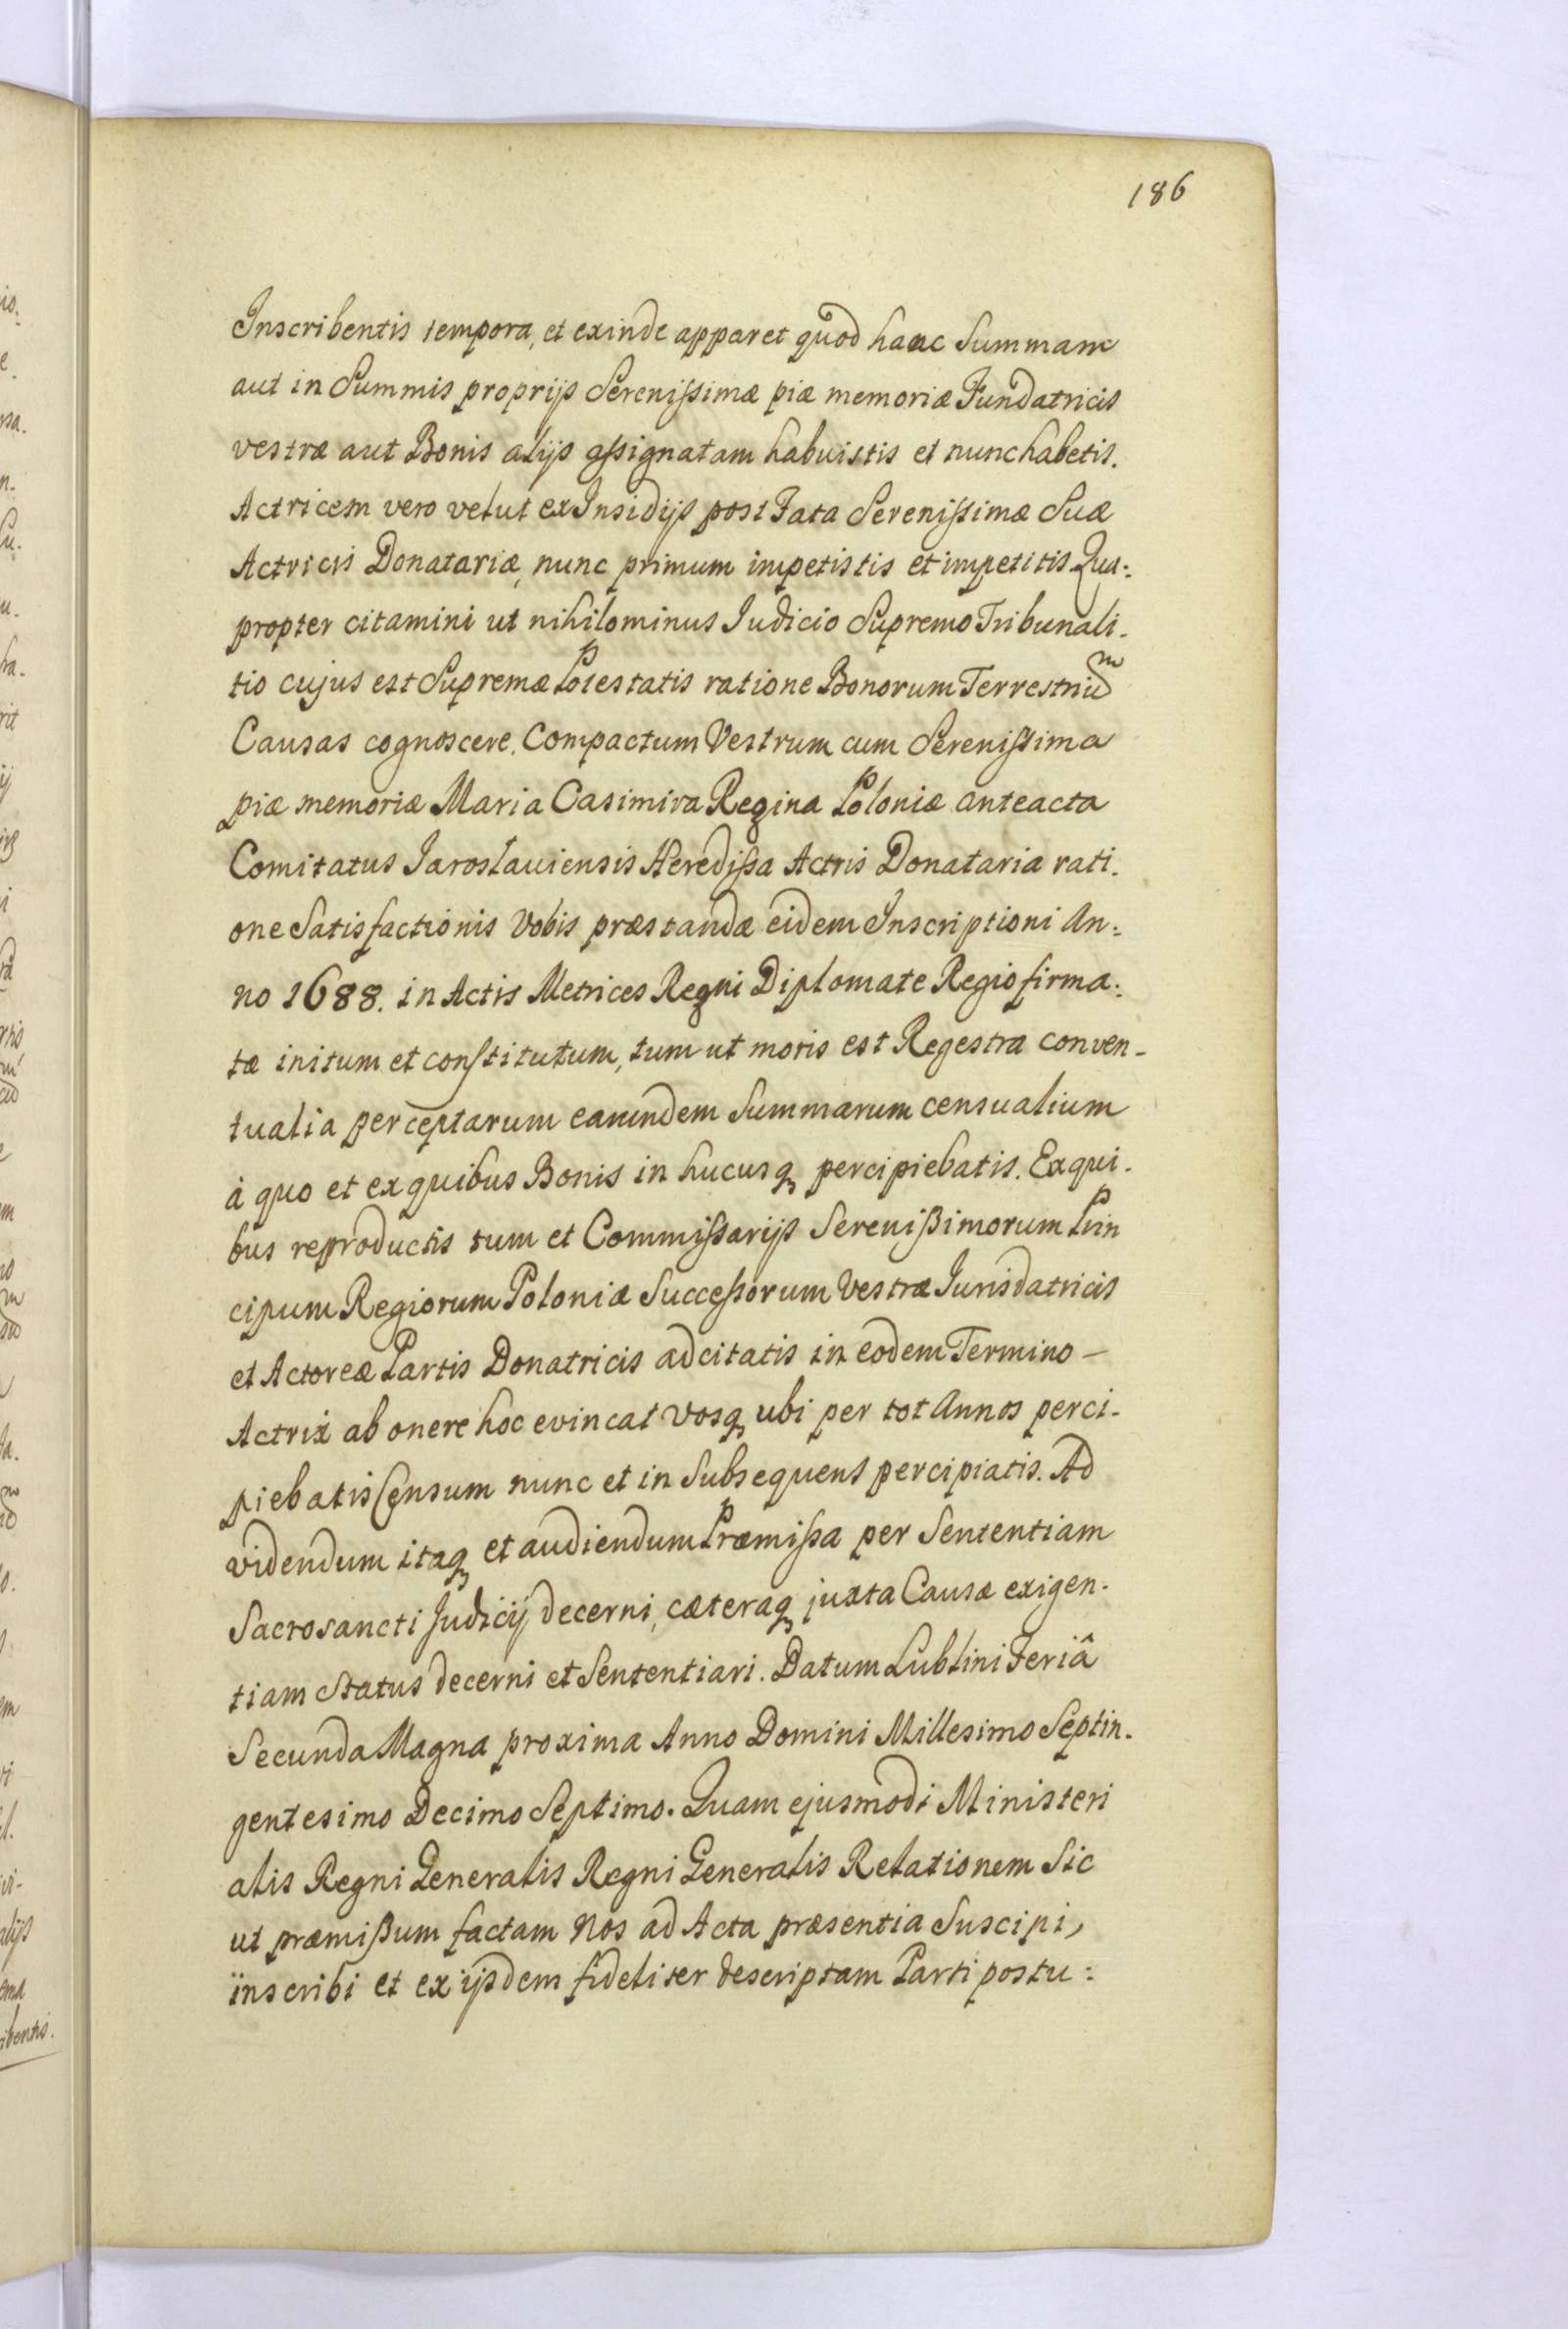 186
Inscribentis tempora, et exinde apparet quod hanc Summam
aut in Summis proprijs Serenissimæ piæ memoriæ Fundatricis
vestræ aut Bonis alijs assignatam habuistis et nunc habetis.
Actricem vero velut ex Insidijs post Fata Serenissimæ Suæ
Actricis Donatariæ, nunc primum impetistis et impetitis. Qua:
propter citamini ut nihilominus Judicio Supremo Tribunali-
tio cujus est Supremæ Potestatis ratione Bonorum Terrestriũ
Causas cognoscere. Compactum Vestrum cum Serenissima
piæ memoriæ Maria Casimira Regina Poloniæ anteacta
Comitatus Jaroslaviensis Heredissa Actris Donataria rati-
one Satisfactionis Vobis præstandæ eidem Inscriptioni An:
no 1688. in Actis Metrices Regni Diplomate Regio firma:
tæ initum et constitutum, tum ut moris est Regestra conven-
tualia perceptarum earundem Summarum censualium
à quo et ex quibus Bonis in hucusq percipiebatis. Ex qui-
bus reproductis tum et Commissarijs Serenissimorum Prin
cipum Regiorum Poloniæ Successorum Vestræ Jurisdatricis
et Actoreæ Partis Donatricis adcitatis in eodem Termino –
Actrix ab onere hoc evincat vosq ubi per tot Annos perci-
piebatis Censum nunc et in Subsequens percipiatis. Ad
videndum itaq et audiendum Præmissa per Sententiam
Sacrosancti Judicij decerni, cæteraq juxta Causæ exigen-
tiam Status decerni et Sententiari. Datum Lublini Feriâ
Secunda Magna proxima Anno Domini Millesimo Septin-
gentesimo Decimo Septimo. Quam ejusmodi Ministeri
alis Regni Generalis Regni Generalis Relationem Sic
ut præmissum factam Nos ad Acta præsentia Suscipi,
inscribi et ex ijsdem fideliter descriptam Parti postu: